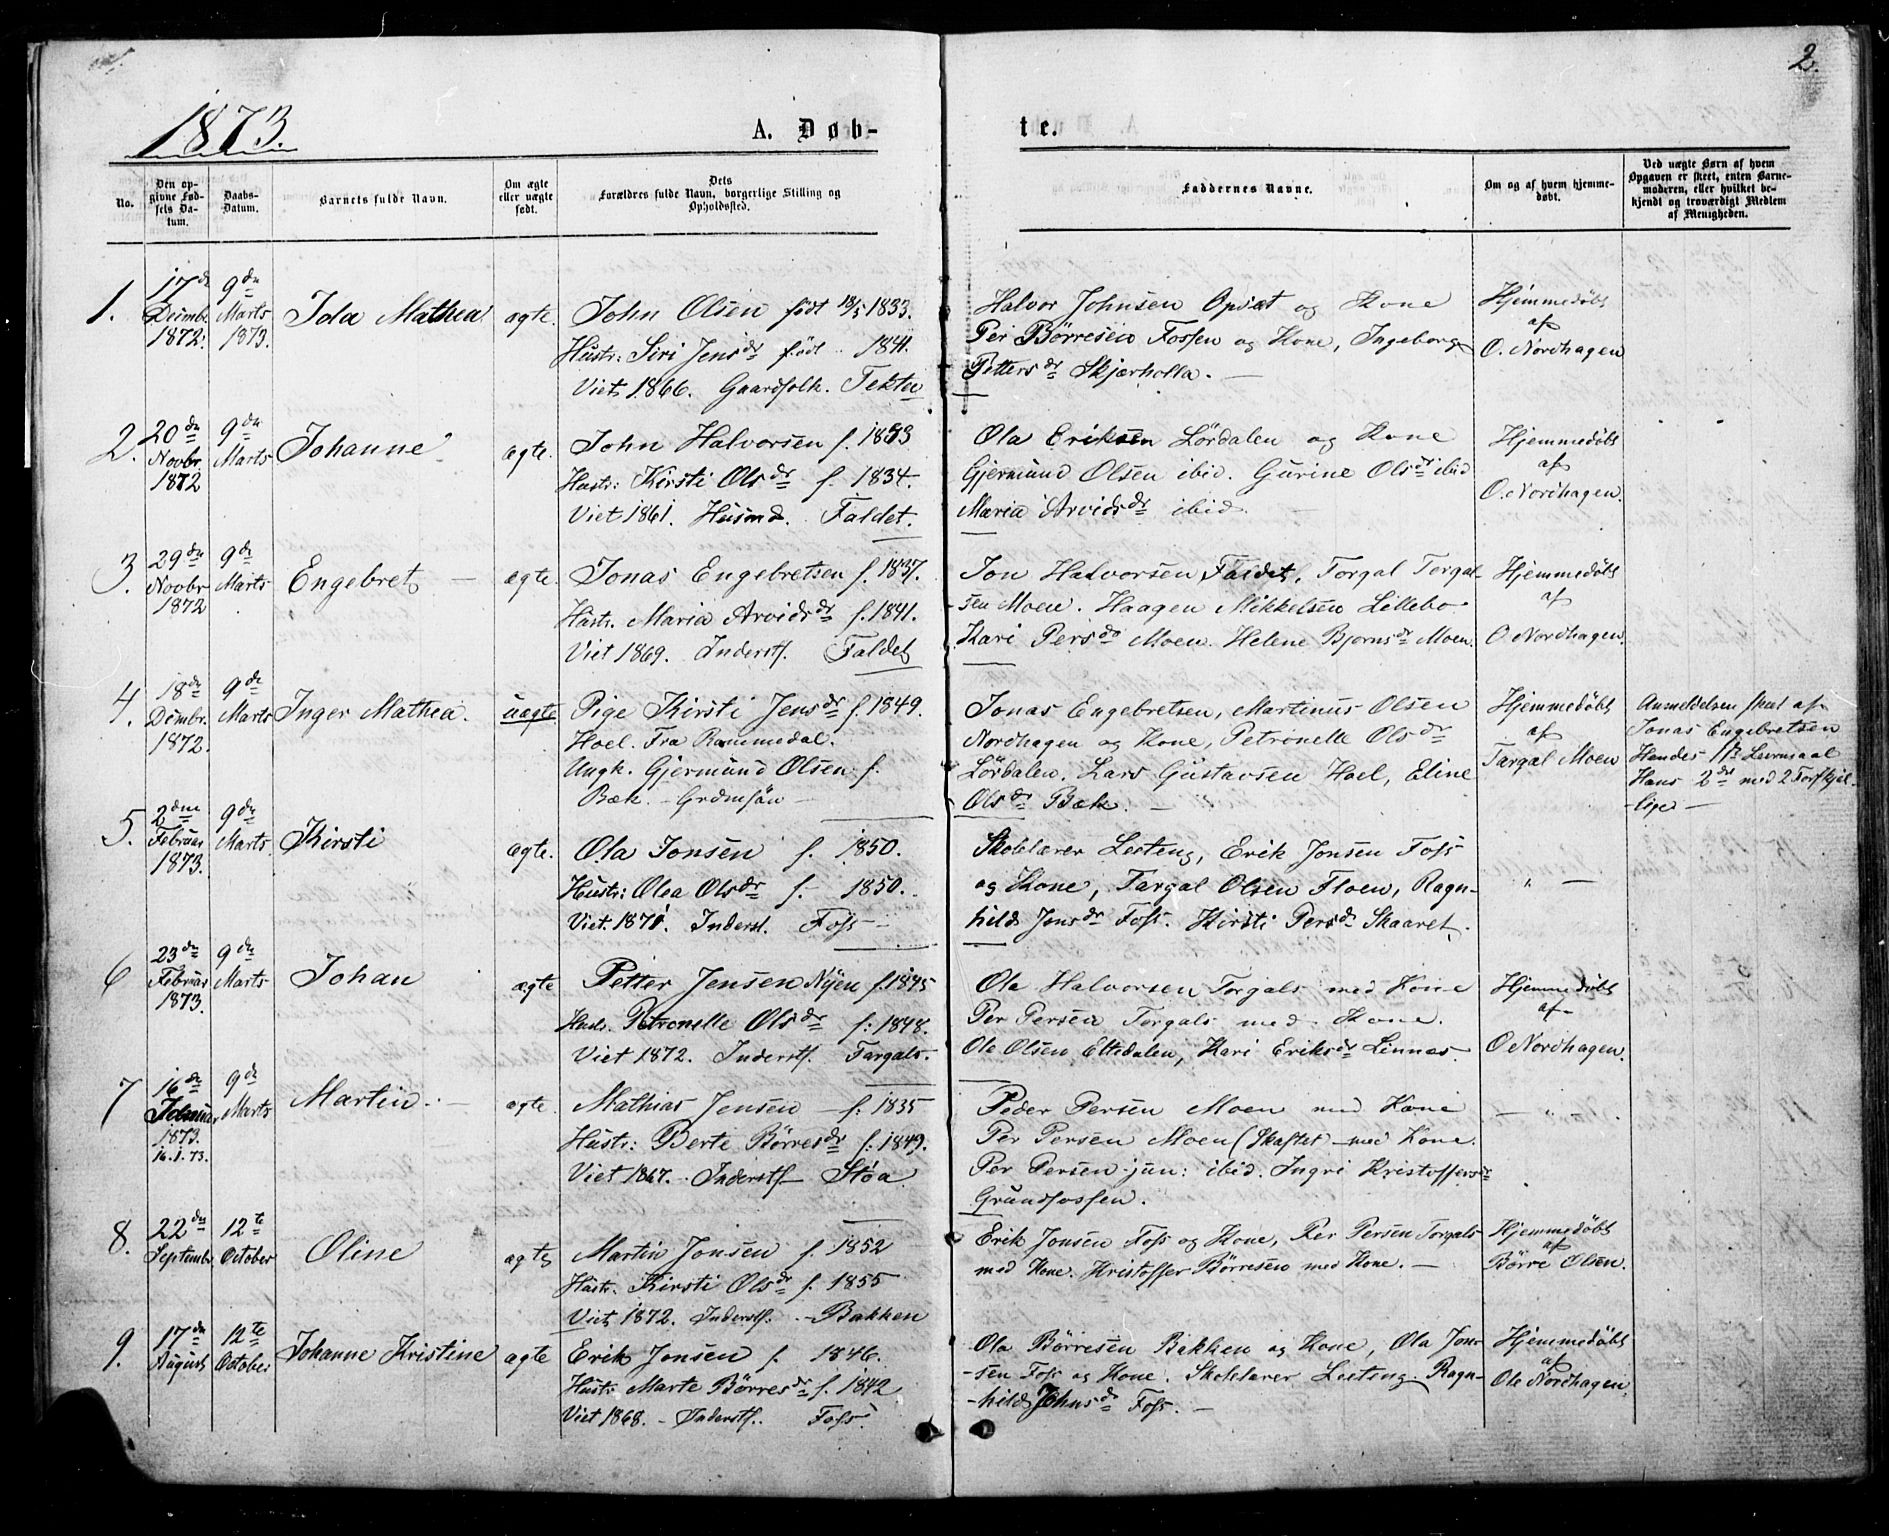 2.
1873.
A. Døb-
te.
No.
Den op-
givne Fød-
sels Da-
tum.
Daabs-
Datum.
Barnets fulde Navn.
Om ægte
eller uægte
født.
Dets
Forældres fulde Navn, borgerlige Stilling og
Opholdssted.
Faddernes Navne.
Om og af hvem hjemme-
døbt.
Ved uægte Børn af hvem
Opgaven er skeet, enten Barne-
moderen, eller hvilket be-
kjendt og troværdigt Medlem
af Menigheden.
1.
17de
Decmbr.
1872.
9de
Marts
1873.
Ida Mathea
ægte.
John Olsen født 18/5 1833.
Hustr: Siri Jensdr født 1841.
Viet 1866. Gaardfolk.
Halvor Johnsen Opsæt og Kone
Per Børresen Fossen og Kone, Ingeborg
Pettersdr Skjærholla. —
Hjemmedøbt
af
O. Nordhagen
2.
20de
Novbr.
1872
9de
Marts
Johanne
ægte.
John Halvorsen f. 1833
Hustr: Kirsti Olsdr f. 1834.
Viet 1861. Husmd. Faldet.
Ola Eriksen Lørdalen og Kone
Gjermund Olsen ibid. Gurine Olsdr ibid
Maria Arvidsdr ibid.
Hjemmedøbt
af
O. Nordhagen.
3.
29de
Novbr
1872
9de
Marts
Engebret —
ægte.
Jonas Engebretsen f. 1837.
Hustr. Maria Arvidsdr f. 1841.
Viet 1869. Inderstf. Faldet
Jon Halvorsen Faldet, Torgal Torgal-
sen Moen. Haagen Mikkelsen Lillebo
Kari Persdr Moen. Helene Bjornsdr Moen.
Hjemmedøbt
af
O. Nordhagen.
4.
18de
Decmbr.
1872.
9de
Marts
Inger Mathea.
uægte
Pige Kirsti Jensdr f. 1849.
Hoel. Fra Rammedal.
Ungk. Gjermund Olsen f.
Bæk. —
Jonas Engebretsen, Martinus Olsen
Nordhagen og Kone, Petronelle Olsdr
Lørdalen. Lars Gustavsen Hoel, Eline
Olsdr Bæk. —
Hjemmedøbt
af
Targal Moen
Anmeldelsen skeet af
Jonas Engebretsen
Hendes 1ste Leiermaal
Hans 2det med 2 Forskjel-
lige —
5.
2den
Februar
1873.
9de
Marts
Kirsti
ægte.
Ola Jonsen f. 1850.
Hustr: Olea Olsdr f. 1850.
Viet. 1871. Inderst. Foss —
Skolelærer Lesteng, Erik Jonsen Foss
og Kone, Targal Olsen Floen, Ragn-
hild Jonsdr Foss. Kirsti Persdr Skaaret.
" —
6
23de
Februar
1873.
9de
Marts
Johan
ægte
Petter Jensen Nÿen f. 1845
Hustr. Petronelle Olsdr f: 1848.
Viet 1872. Inderstf. Targals.
Ola Halvorsen Torgals med Kone
Per Persen Torgals med Kone.
Ole Olsen Ettedalen, Kari Eriksdr Linnas
Hjemmedøbt
af
O Nordhagen.
7
16de
Januar
1873.
16.1.73.
9de
Marts
Martin. —
ægte.
Mathias Jensen — f: 1835
Hustr: Berte Børresdr f: 1849.
Viet 1867. Inderstf Støa
Peder Persen Moen med Kone
Per Persen Moen (Skaftet med Kone.
Per Persen jun: ibid. Ingri Kristoffersdr
Grundfossen.
— " —
8.
22de
Septembr.
12te
October
Oline
ægte
Martin Jonsen f. 1852
Hustr. Kirsti Olsdr f. 1855
Viet, 1872. Inderstf. — Bakken
Erik Jonsen Foss og Kone, Per Persen Torgals
med Kone. Kristoffer Børresen med Kone. —
Hjemmedøbt
af
Børre Olsen.
9.
17de
August
12te
October
Johanne Kristine
ægte
Erik Jonsen f. 1846.
Hustr Marte Børresdr f. 1842
Viet 1868. — Inderstf. Foss.
Ola Børresen Bakken og Kone, Ola Jon-
-sen Foss og Kone. Skolelærer Lesteng. Ragn-
-hild Johnsdr Foss. —
Hjemmedøbt
af
Ole Nordhagen.